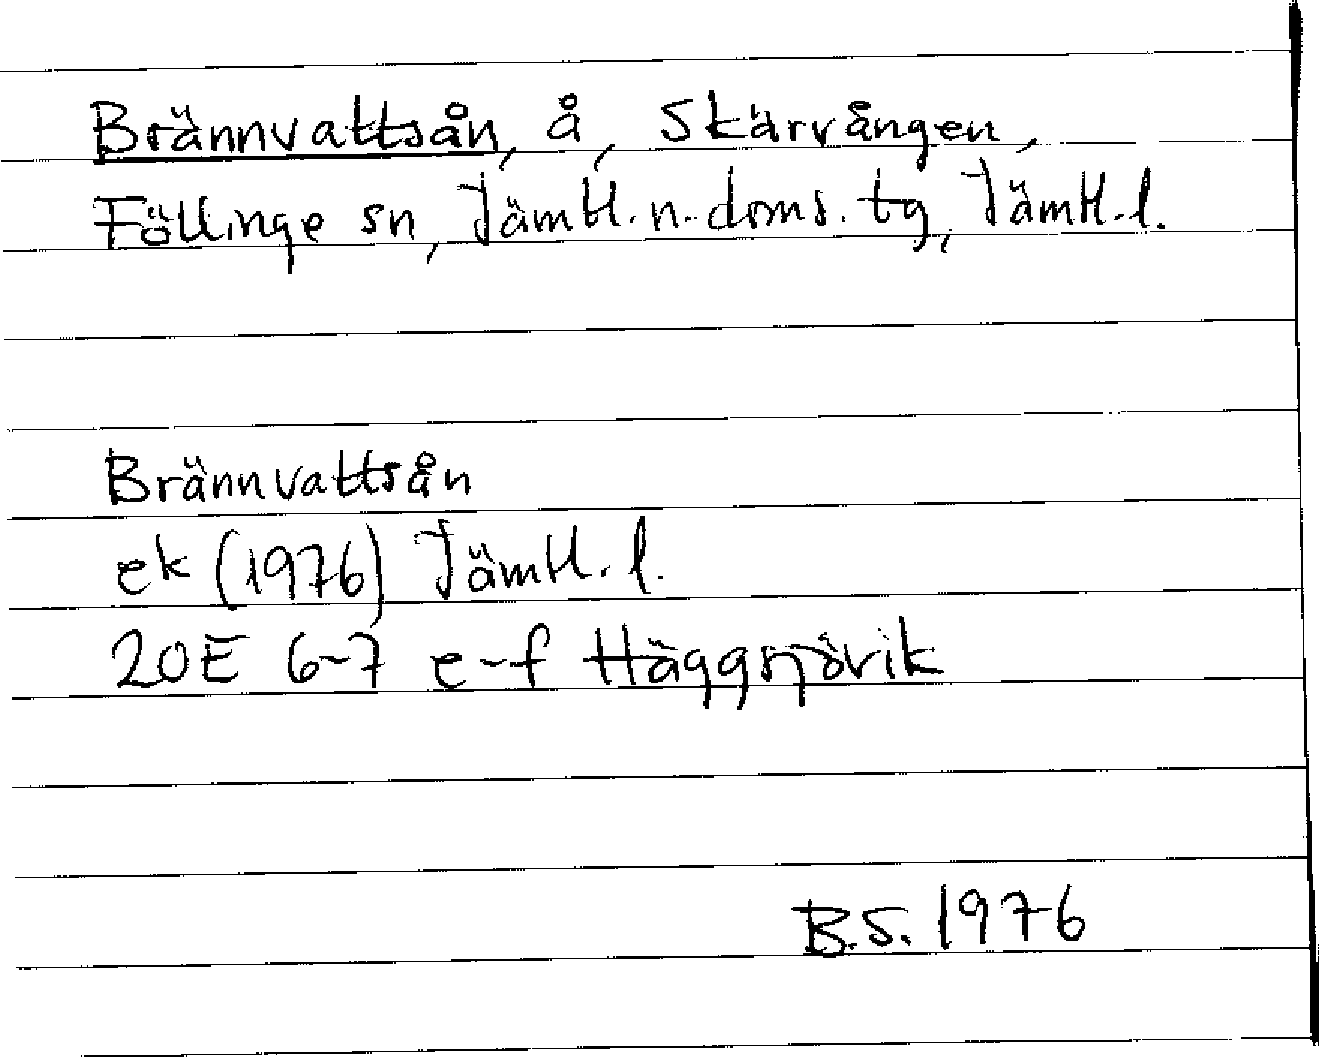 Brännvattsån, å, Skärvången,
Föllinge sn, Jämtl. n. doms. tg, Jämtl. l.
Brännvattsån
ek (1976) Jämtl. l.
20E 6-7 e-f Häggsjövik
B.S. 1976